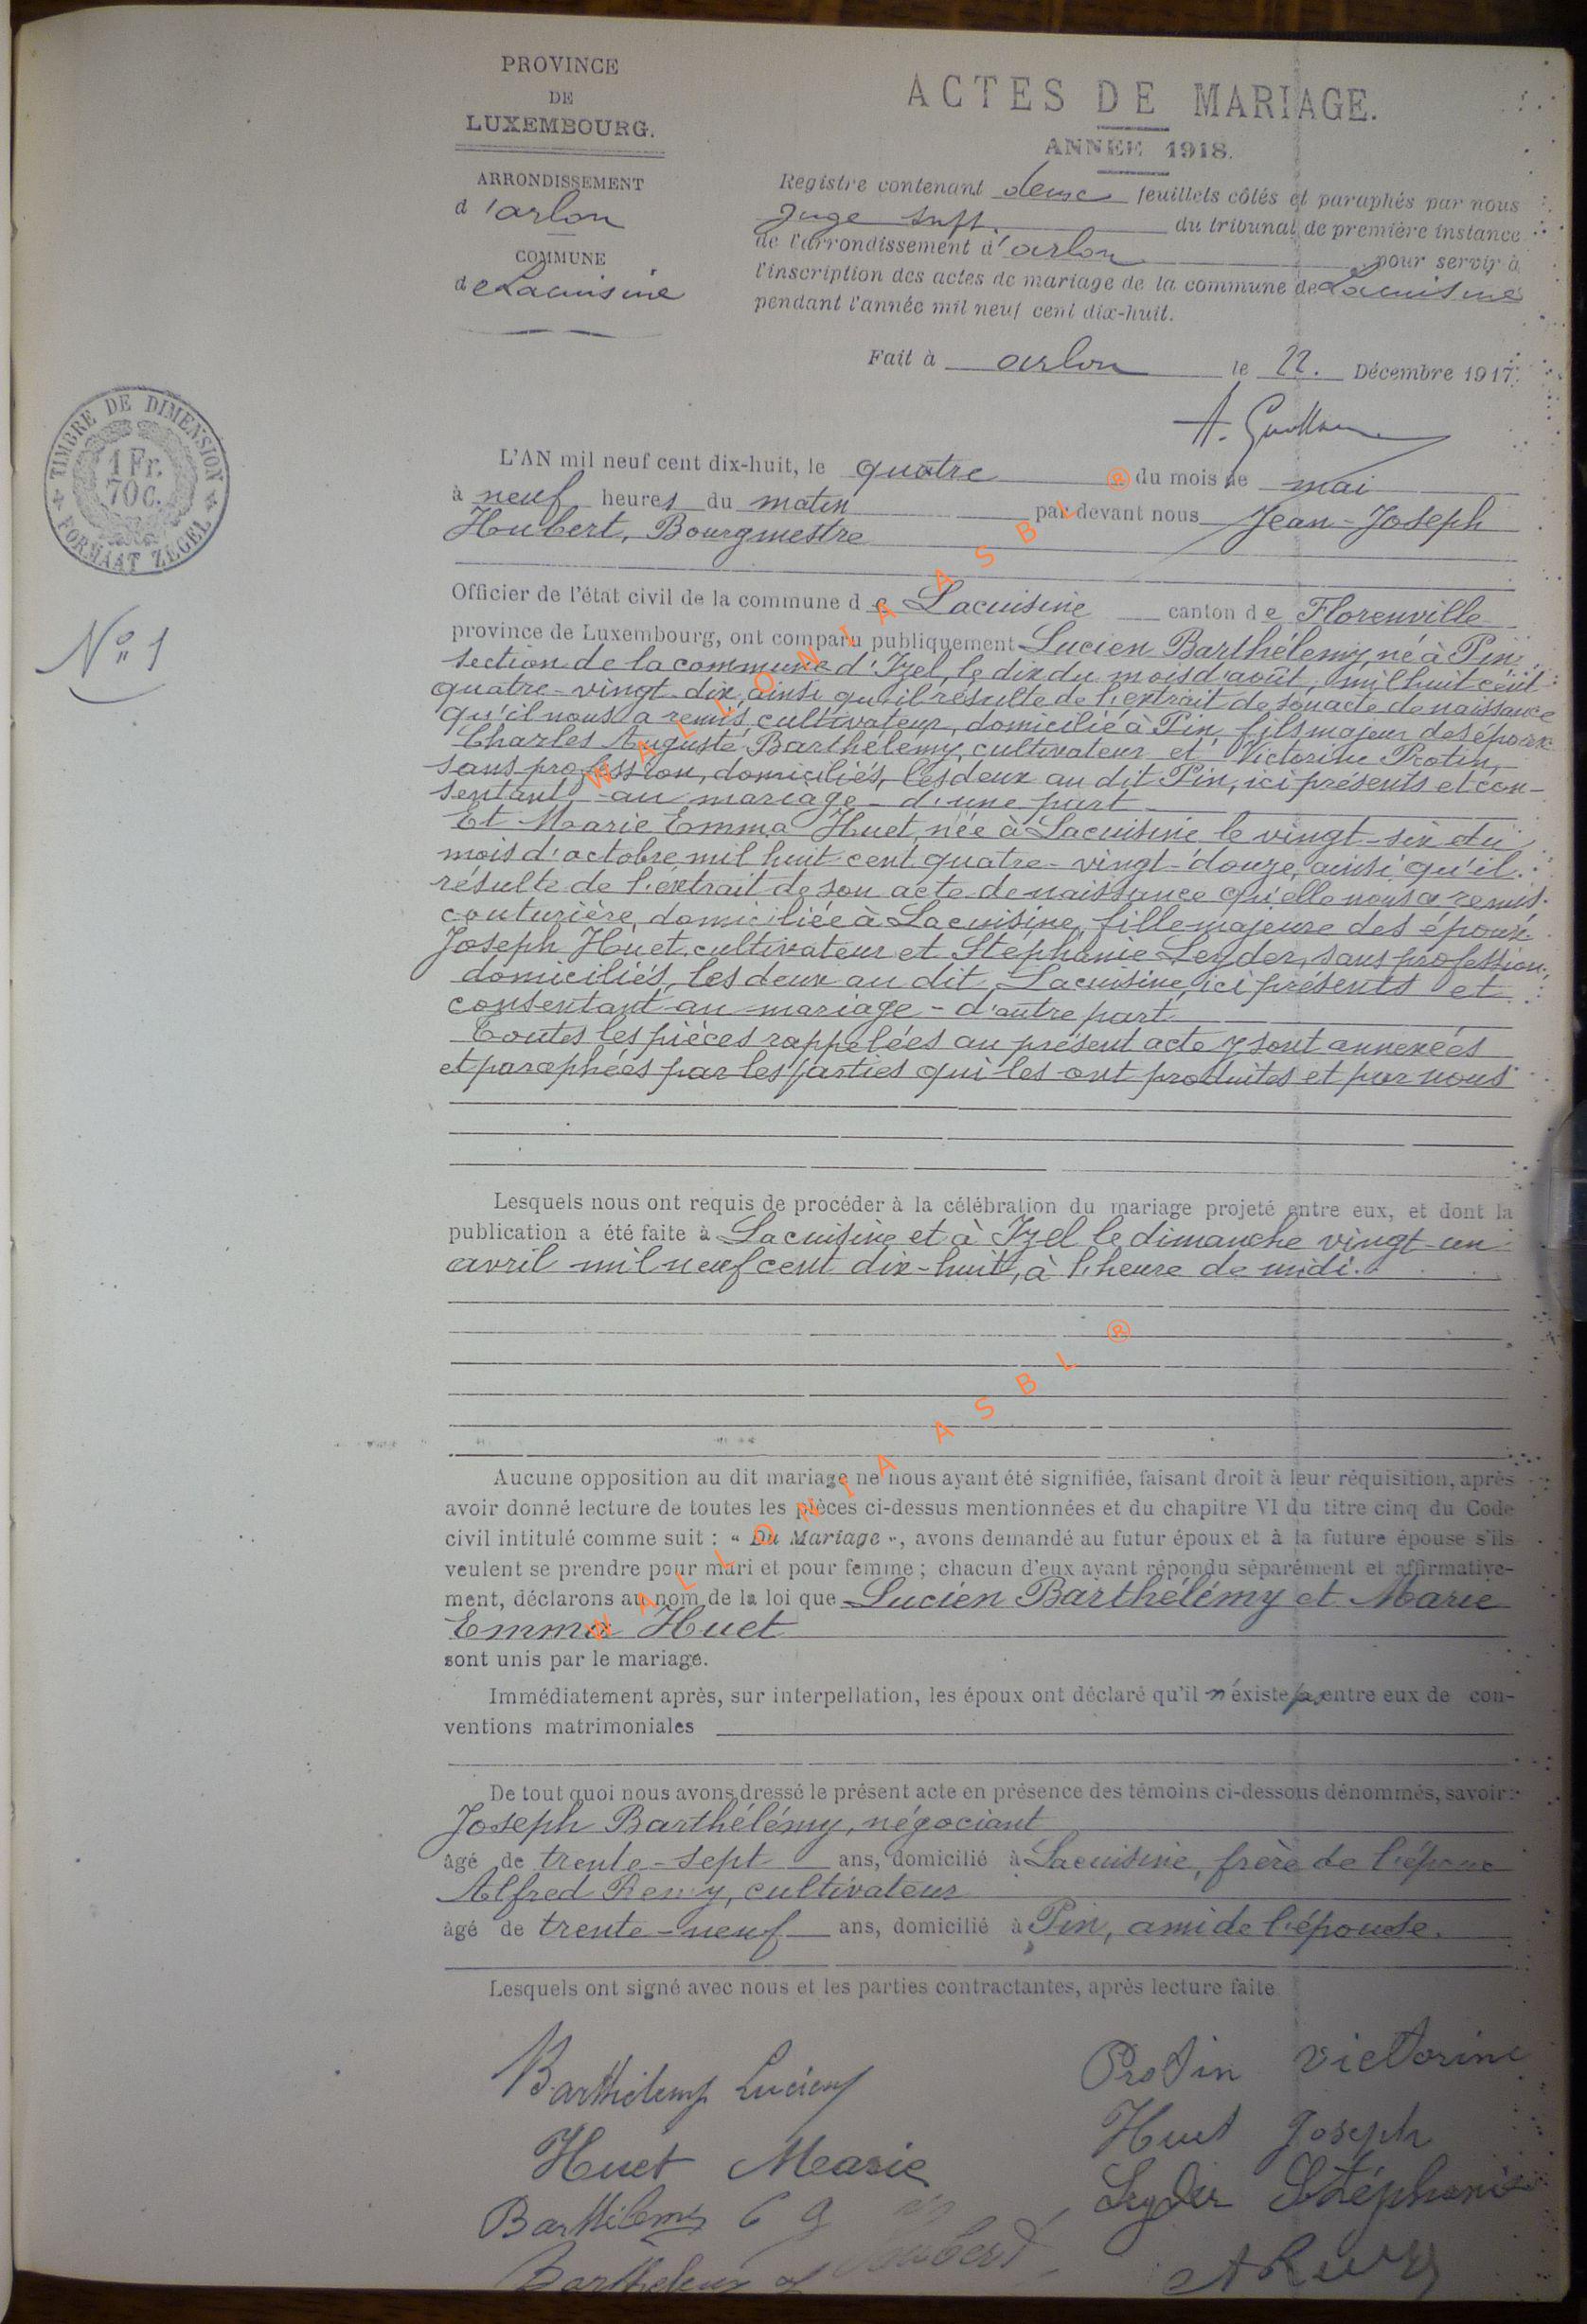 PROVINCE
DE
LUXEMBOURG.
ARRONDISSEMENT
d'arlon
COMMUNE
de Lacuisine
ACTES DE MARIAGE.
ANNEE 1918.
Registre contenant deux feuillets côtés et paraphés par nous
Juge supp. du tribunal de première instance
de l'arrondissement d'arlon pour servir à
l'inscription des actes de mariage de la commune de Lacuisine
pendant l'année mil neuf cent dix-huit.
Fait à arlon le 22. Décembre 1917.
TIMBRE DE DIMENSION
1 Fr.
70 C.
FORMAAT ZEGEL
N° 1
L'AN mil neuf cent dix-huit, le quatre du mois de mai
à neuf heures du matin par devant nous Jean-Joseph
Hubert, Bourgmestre
Officier de l'état civil de la commune de Lacuisine canton de Florenville
province de Luxembourg, ont comparu publiquement Lucien Barthélemy, né à Pin,
section de la commune d'Izel, le dix du mois d'août, mil huit cent
quatre-vingt-dix, ainsi qu'il résulte de l'extrait de son acte de naissance
qu'il nous a remis, cultivateur, domicilié à Pin, fils majeur des époux
Charles Auguste Barthélemy, cultivateur et Victorine Protin,
sans profession, domiciliés, les deux au dit Pin, ici présents et con-
sentant au mariage - d'une part
Et Marie Emma Huet, née à Lacuisine le vingt-six du
mois d'octobre mil huit cent quatre-vingt-douze, ainsi qu'il
résulte de l'extrait de son acte de naissance qu'elle nous a remis.
couturière, domiciliée à Lacuisine, fille majeure des époux
Joseph Huet, cultivateur et Stéphanie Leyder, sans profession,
domiciliés, les deux au dit Lacuisine, ici présents et
consentant au mariage - d'autre part
Toutes les pièces rappelées au présent acte y sont annexées
et paraphées par les parties qui les ont produites et par nous
Lesquels nous ont requis de procéder à la célébration du mariage projeté entre eux, et dont la
publication a été faite à Lacuisine et à Izel le dimanche vingt-un
avril mil neuf cent dix-huit, à l'heure de midi.
Aucune opposition au dit mariage ne nous ayant été signifiée, faisant droit à leur réquisition, après
avoir donné lecture de toutes les pièces ci-dessus mentionnées et du chapitre VI du titre cinq du Code
civil intitulé comme suit : « Du Mariage », avons demandé au futur époux et à la future épouse s'ils
veulent se prendre pour mari et pour femme ; chacun d'eux ayant répondu séparément et affirmative-
ment, déclarons au nom de la loi que Lucien Barthélémy et Marie
Emma Huet
sont unis par le mariage.
Immédiatement après, sur interpellation, les époux ont déclaré qu'il n'existe pas entre eux de con-
ventions matrimoniales
De tout quoi nous avons dressé le présent acte en présence des témoins ci-dessous dénommés, savoir :
Joseph Barthélémy, négociant
âgé de trente-sept ans, domicilié à Lacuisine, frère de l'époux
Alfred Remy, cultivateur
âgé de trente-neuf ans, domicilié à Pin, ami de l'épouse.
Lesquels ont signé avec nous et les parties contractantes, après lecture faite
Barthélemy Lucien
Protin Victorine
Huet Marie
Huet Joseph
Barthélemy
Leyder Stéphanie
Hubert
WALLONIA ASBL ®
WALLONIA ASBL ®